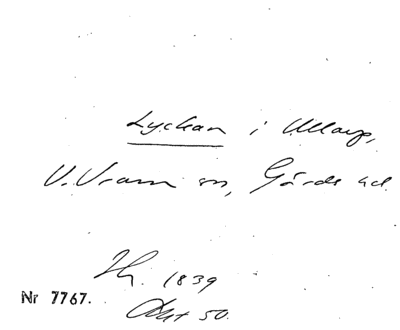 Lyckan i Ullarp,
V. Vram sn, Gärds hd.
Th. 1839
Nr 7767.
Akt 50.